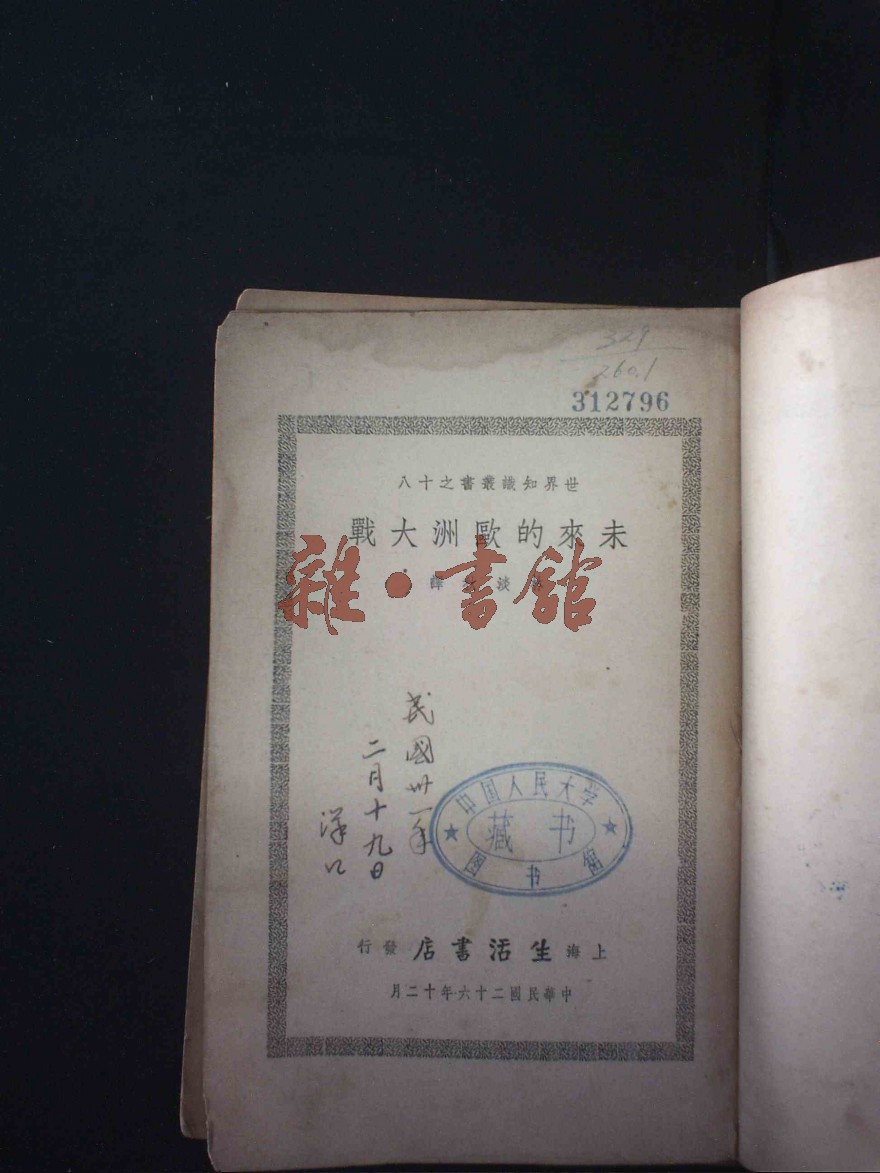 329
260.1
312796
世界知識叢書之十八
未來的歐洲大戰
淡 譯
雜·書館
民國卅一年
二月十九日
洋口
中国人民大学
藏书
图书馆
上海生活書店發行
中華民國二十六年十二月